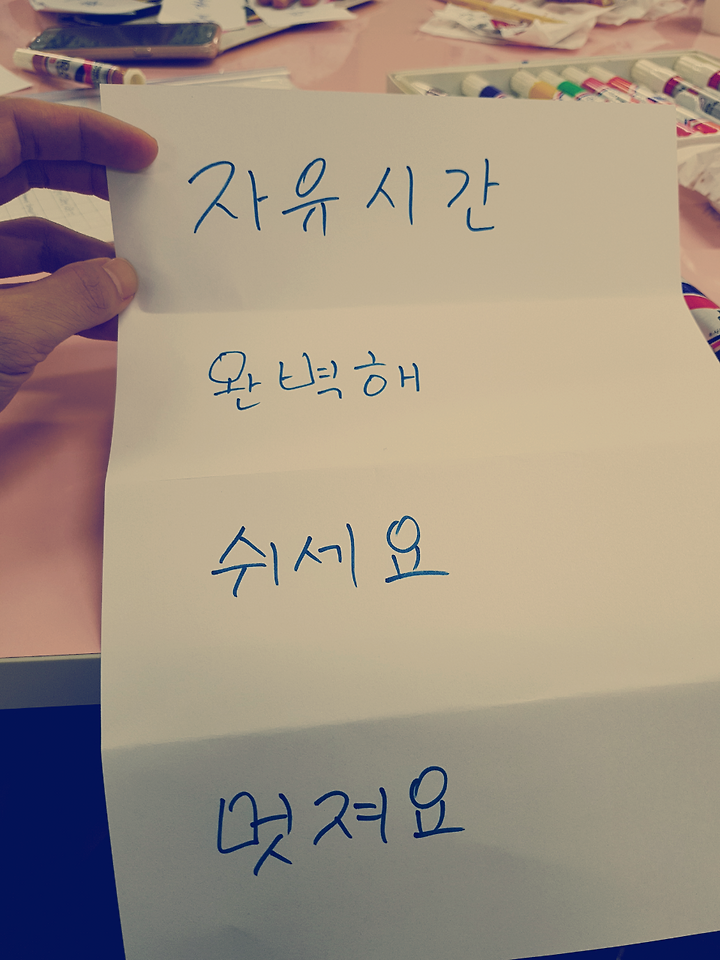 자유시간
완벽해
쉬세요
멋져요